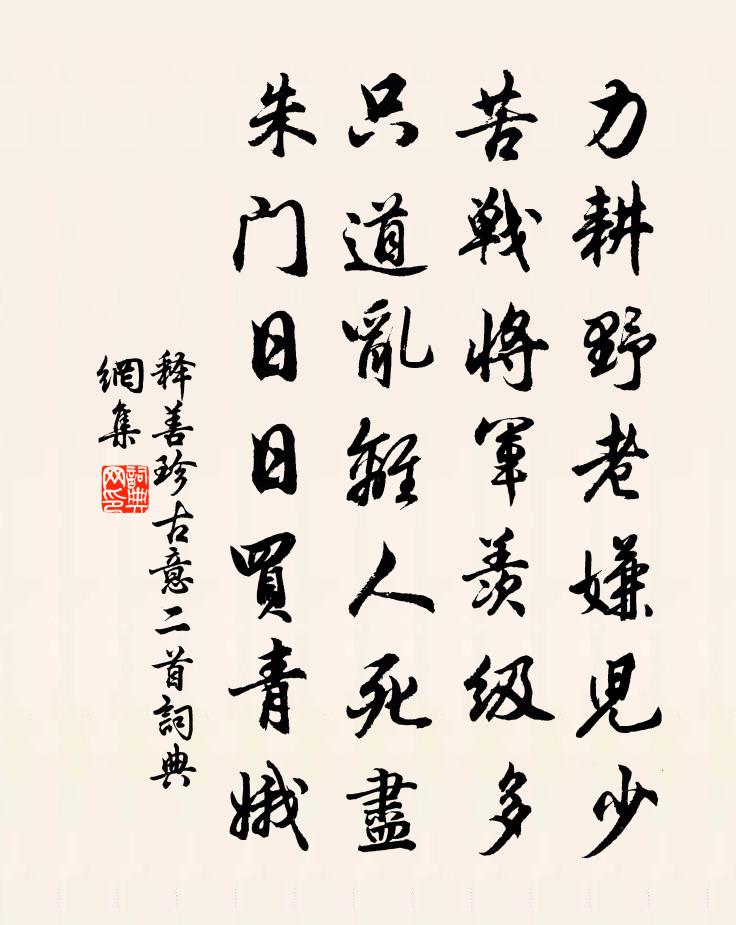 力耕野老嫌兒少
苦戰將軍羨級多
只道亂離人死盡
朱門日日買青娥
释善珍古意二首詞典
網集
詞典
网印